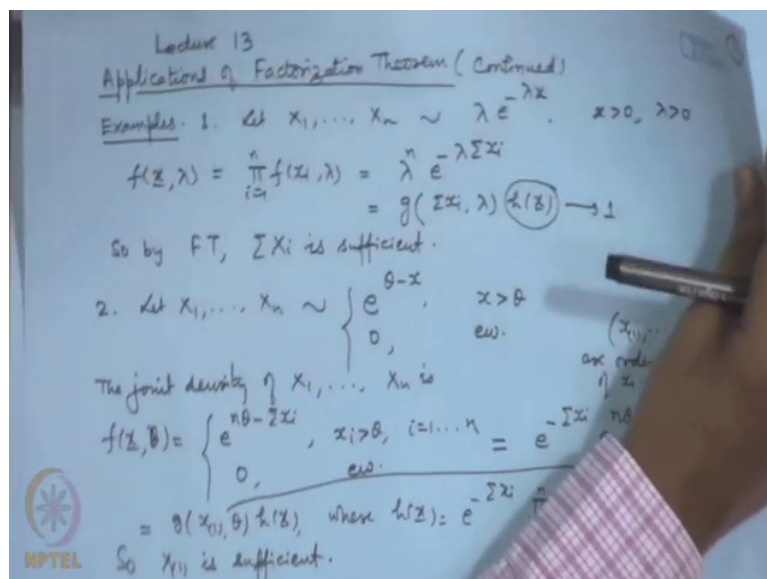 Lecture 13
Applications of Factorization Theorem (Continued)
Examples. 1. Let X₁, ..., Xₙ ~ λ e^{-λx}. x>0, λ>0
f(x, λ) = ∏_{i=1}^{n} f(xᵢ, λ) = λⁿ e^{-λΣxᵢ}
= g(Σxᵢ, λ) h(x) → 1
So by FT, ΣXᵢ is sufficient.
2. Let X₁, ..., Xₙ ~ { e^{θ-x}, x>θ
0, ew. (x₍₁₎, ..
are orde
of xᵢ
The joint density of X₁, ..., Xₙ is
f(x, θ) = { e^{nθ-Σxᵢ}, xᵢ>θ, i=1...n = e^{-Σxᵢ} e^{nθ}
0, ew.
= g(x₍₁₎, θ) h(x), where h(x) = e^{-Σxᵢ} ∏
So X₍₁₎ is sufficient.
NPTEL